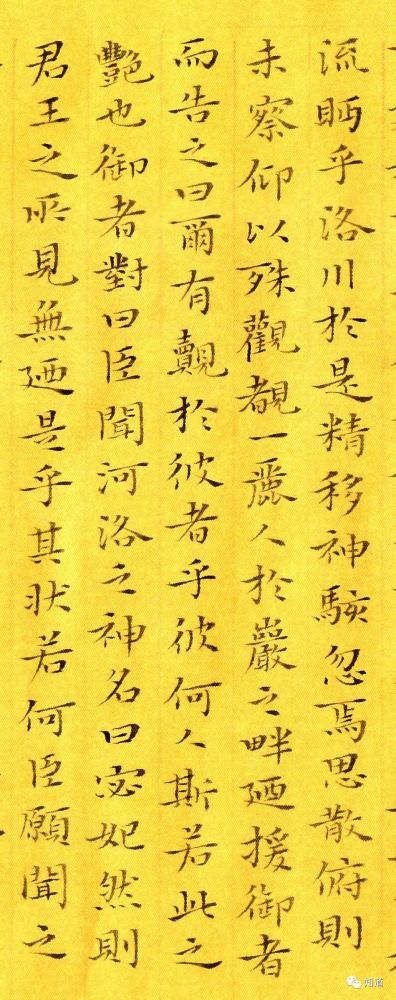 流眄乎洛川於是精移神駭忽焉思散俯則
未察仰以殊觀覩一麗人於巖之畔廼援御者
而告之曰爾有觌於彼者乎彼何人斯若此之
艷也御者對曰臣聞河洛之神名曰宓妃然則
君王之所見無廼是乎其狀若何臣願聞之
知道